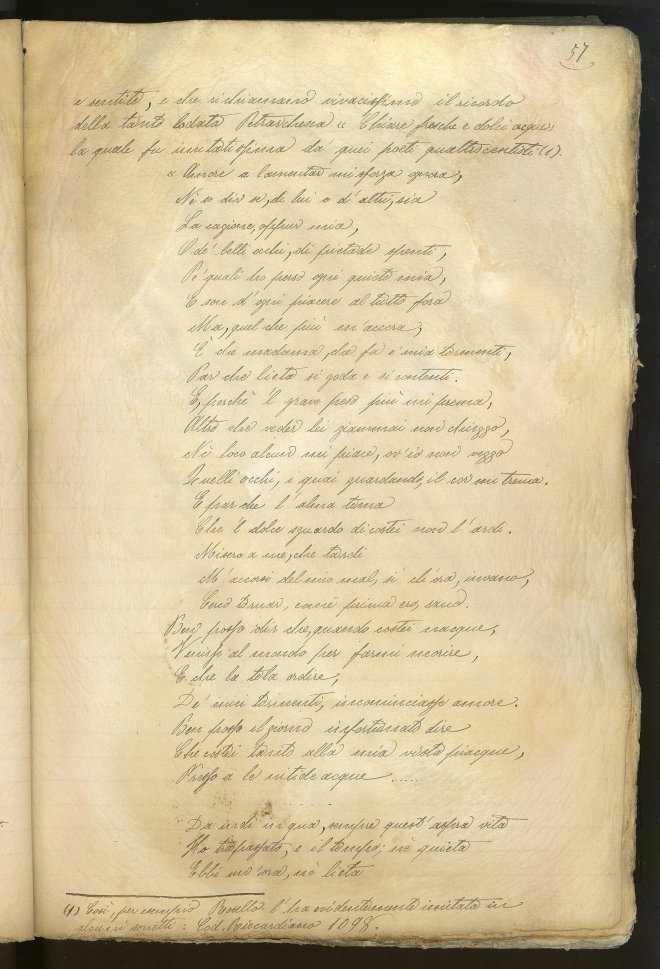 57
e sentite, e che richiamano vivacissimo il ricordo
della tanto lodata Petrarchesca « Chiare fresche e dolci acque»
la quale fu imitatissima da' quei poeti quattrocentisti (1).
« Amore a lamentar mi sforza ognora,
Nè so dir se, di lui o d'altri, sia
La cagione, oppur mia,
O de' belli occhi, di pietade spenti,
Pe' quali ho perso ogni quiete mia,
E son d'ogni piacere al tutto fora
Ma, quel che più m'accora,
È che madonna, che fa e' mia tormenti,
Par che lieta si goda e si contenti.
E, perchè 'l grave peso più mi prema,
Altro che veder lei giammai non chieggo,
Nè loco alcuno mi piace, ov'io non veggo
Quelli occhi, i quai guardando, il cor mi trema.
E par che l'alma tema
Che 'l dolce sguardo di costei non l'ardi.
Misero a me, che tardi
M'accorsi del mio mal, sì ch'ora, invano,
Cerco tornar, com'è prima ero, sano.
Ben posso dir che, quando costei nacque,
Venisse al mondo per farmi morire,
E che la tela ordire,
De' miei tormenti, incominciasse amore.
Ben posso il giorno infortunato dire
Che costei tanto alla mia vista piacque,
Presso a le nitide acque ......
......
Da indi in qua, sempre quest'aspra vita
Ho trapassato, e il tempo; nè quieta
Ebbi un'ora, nè lieta
(1) Così, per esempio Rosello l'ha evidentemente imitata in
alcuni sonetti: Cod. Riccardiano 1098.